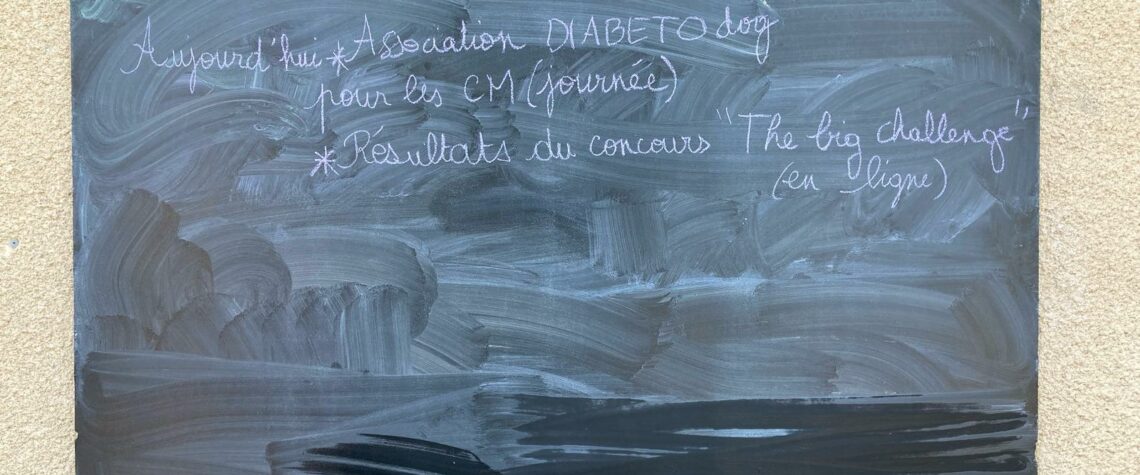 Aujourd'hui * Association DIABETO dog
pour les CM (journée)
* Résultats du concours "The big challenge"
(en ligne)